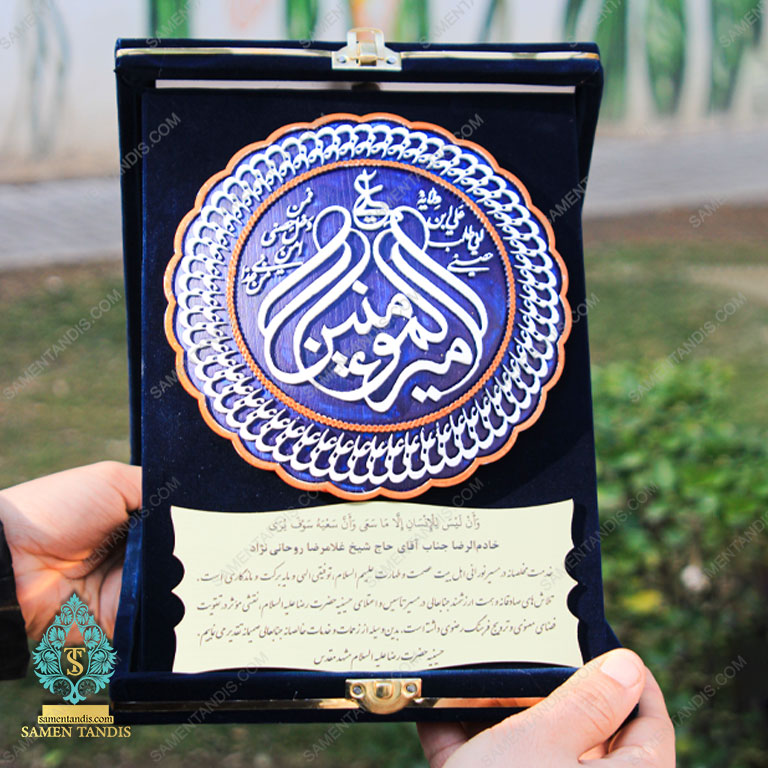 علی
امیرالمؤمنین
ولایة
علی بن
ابیطالب
حصنی
فمن
دخل حصنی
امن
من عذابی
وَأَنْ لَیْسَ لِلْإِنْسَانِ إِلَّا مَا سَعَى وَأَنَّ سَعْیَهُ سَوْفَ یُرَى
خادم‌الرضا جناب آقای حاج شیخ غلامرضا روحانی نژاد
خدمت مخلصانه در مسیر نورانی اهل بیت عصمت و طهارت علیهم السلام، توفیقی الهی و مایه برکت و ماندگاری است.
تلاش‌های صادقانه و همت ارزشمند جنابعالی در مسیر تأسیس و اعتلای حسینیه حضرت رضا علیه السلام، نقشی موثر در تقویت
فضای معنوی و ترویج فرهنگ رضوی داشته است. بدین وسیله از زحمات و خدمات خالصانه جنابعالی صمیمانه تقدیر می نماییم.
حسینیه حضرت رضا علیه السلام مشهد مقدس
TS
samentandis.com
SAMEN TANDIS
SAMENTANDIS.COM